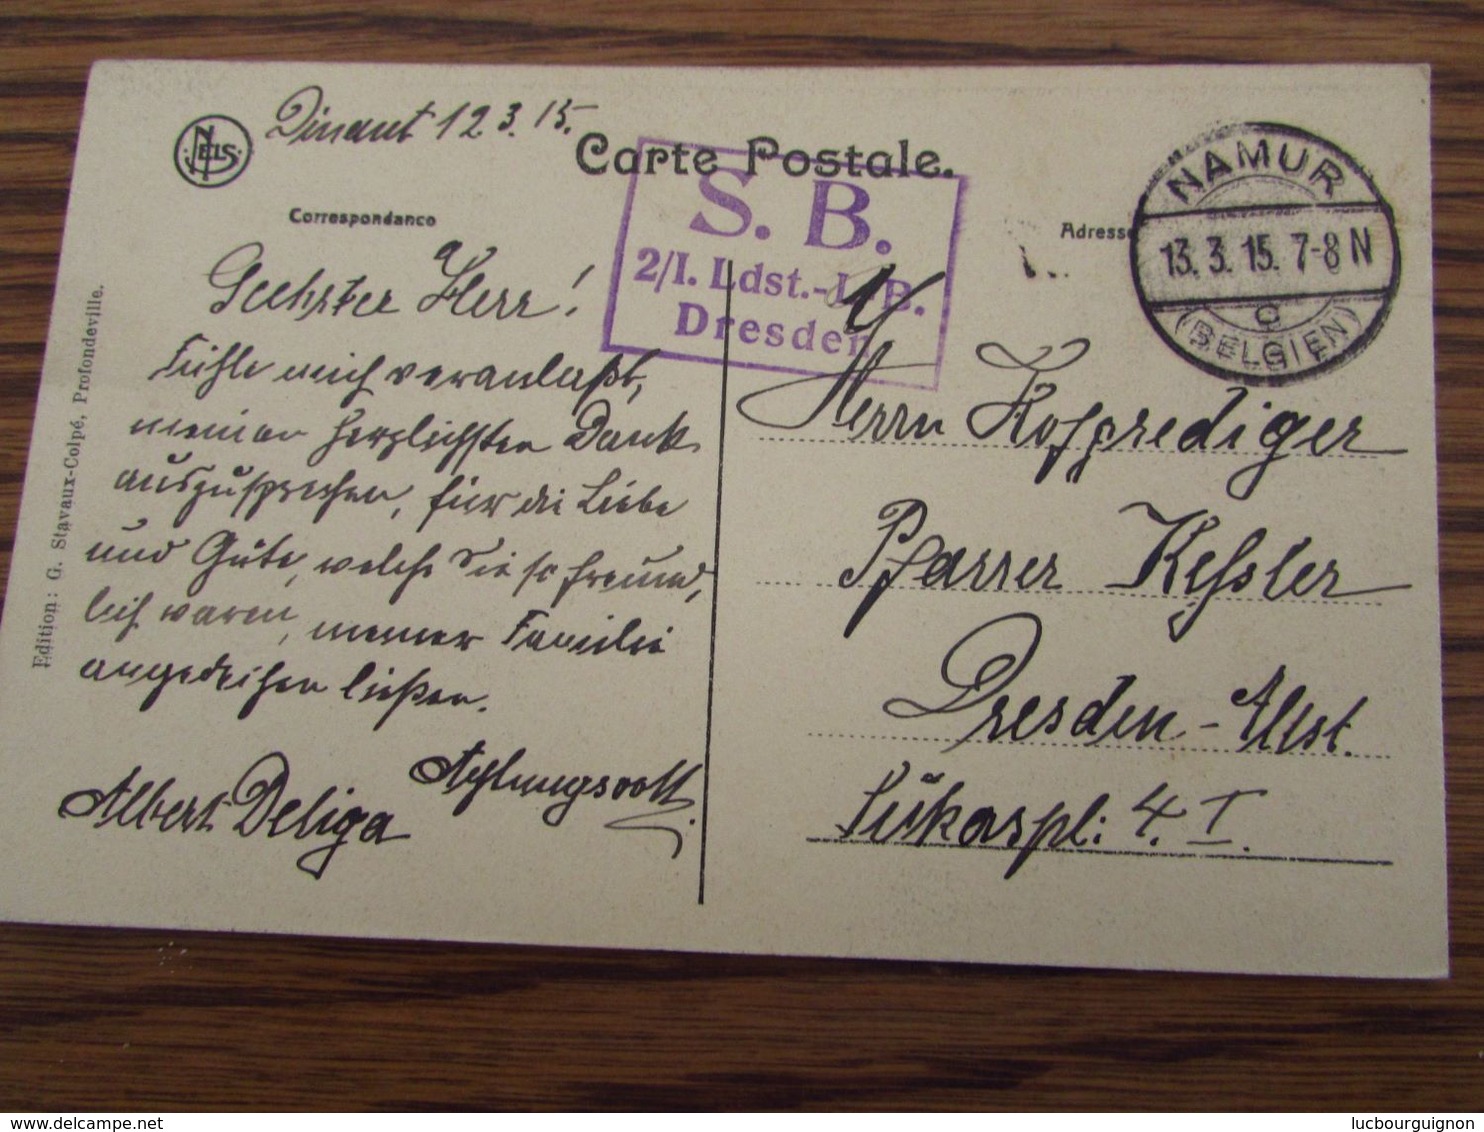 NELS
Dinant 12.3.15.
Carte Postale.
Correspondance
Adresse
S. B.
2/I. Ldst.-I.-B.
Dresden
NAMUR
13. 3. 15. 7-8 N
c
(BELGIEN)
Geehrter Herr!
Fühle mich veranlaßt,
meinen herzlichsten Dank
auszusprechen, für die Liebe
und Güte, welche Sie so freund,
lich waren, meiner Familie
angedeihen ließen.
Achtungsvoll
Albert Deliga
Herrn Hofprediger
Pfarrer Keßler
Dresden-Altst.
Lukaspl: 4. I.
Edition: G. Stavaux-Colpé, Profondeville.
delcampe.net
lucbourguignon